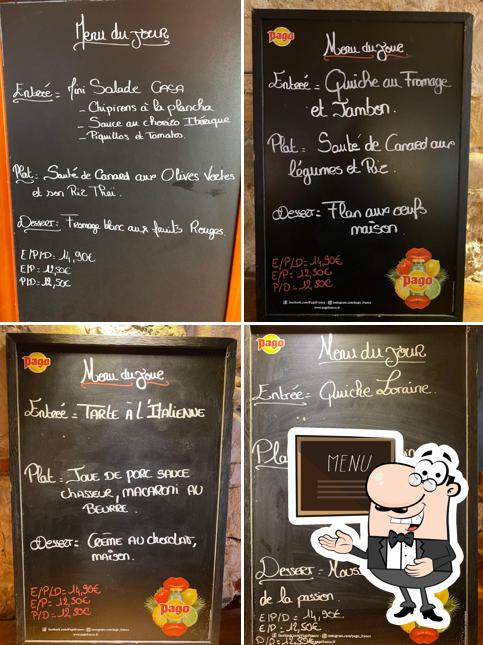 Menu du jour
Entrée = Mini Salade CASA
- Chipirons à la plancha
- Sauce au chorizo Ibérique
- Piquillos et Tomates.
Plat = Sauté de Canard aux Olives Vertes
et son Riz Thaï.
Dessert = Fromage blanc aux fruits Rouges.
E/P/D = 14,90€
E/P = 12,50€
P/D = 12,50€
Pago
Menu du jour
Entrée = Quiche au Fromage
et Jambon.
Plat = Sauté de Canard aux
légumes et Riz.
Dessert = Flan aux oeufs
maison.
E/P/D = 14,90€
E/P = 12,50€
P/D = 12,50€
Pago
facebook.com/PagoFrance instagram.com/pago_france
www.pagofrance.fr
Pago
Menu du jour
Entrée = TARTE À L'ITALIENNE
Plat = JOUE DE PORC SAUCE
CHASSEUR, MACARONI AU
BEURRE.
Dessert = CRÈME AU CHOCOLAT,
MAISON.
E/P/D = 14,90€
E/P = 12,50€
P/D = 12,50€
Pago
facebook.com/PagoFrance instagram.com/pago_france
www.pagofrance.fr
Pago
Menu du jour
Entrée = Quiche Loraine.
MENU
Dessert =
de la passion.
E/P/D = 14,90€
E/P = 12,50€
P/D = 12,50€